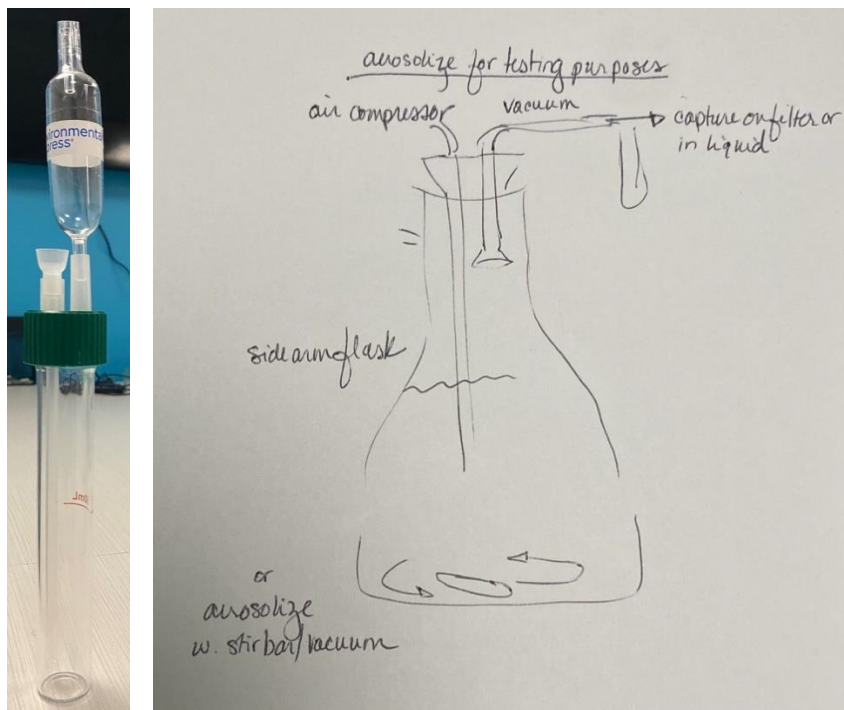 ironmental
ress®
aerosolize for testing purposes
air compressor
vacuum
capture on filter or
in liquid
side arm flask
or
aerosolize
w. stirbar/vacuum